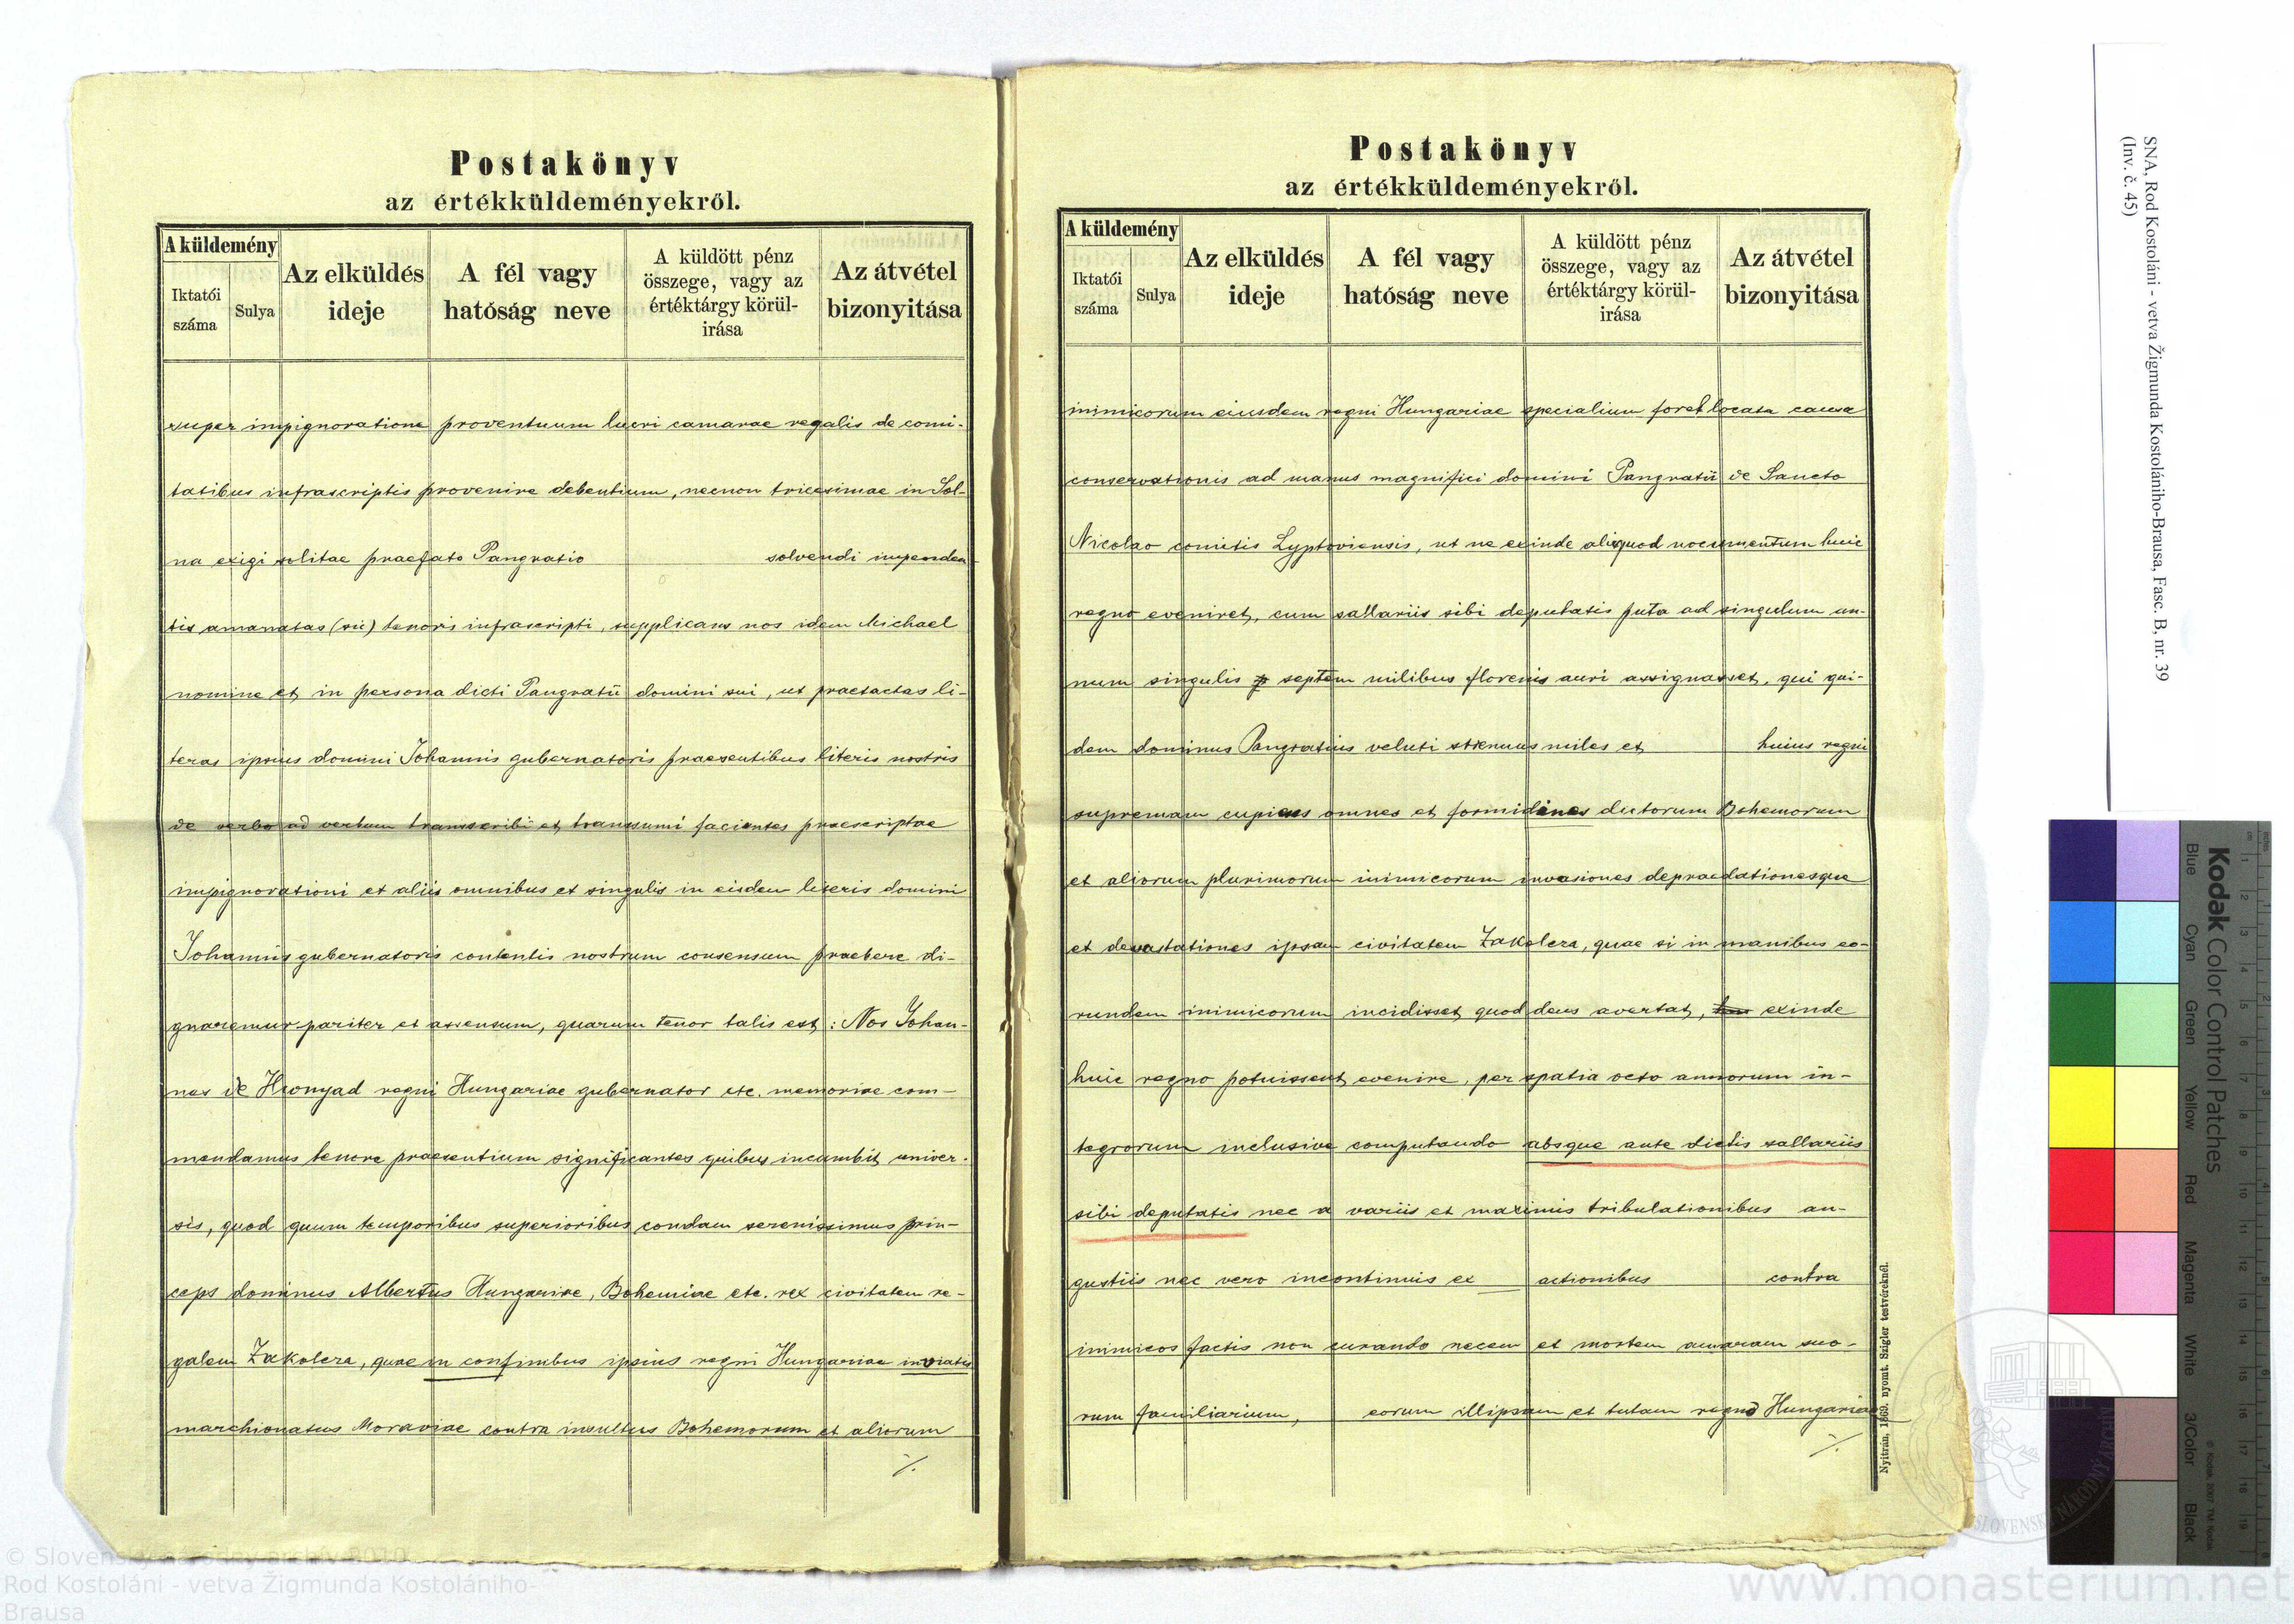 Postakönyv
az értékküldeményekről.
A küldemény
Iktatói száma
Sulya
Az elküldés ideje
A fél vagy hatóság neve
A küldött pénz összege, vagy az értéktárgy körül-irása
Az átvétel bizonyitása
super impignoratione proventuum lucri camarae regalis de comi-
tatibus infrascriptis provenire debentium, necnon tricesimae in Sol-
na exigi solitae praefato Pangratio solvendi impenden-
tis amanatas (sic) tenoris infrascripti, supplicans nos idem Michael
nomine et in persona dicti Pangratii domini sui, ut praetactas li-
teras ipsius domini Johannis gubernatoris praesentibus literis nostris
de verbo ad verbum transscribi et transsumi facientes praescriptae
impignorationi et aliis omnibus et singulis in eisdem literis domini
Johannis gubernatoris contentis nostrum consensum praebere di-
gnaremur pariter et assensum, quarum tenor talis est: Nos Johan-
nes de Hwnyad regni Hungariae gubernator etc. memoriae com-
mendamus tenore praesentium significantes quibus incumbit univer-
sis, quod quum temporibus superioribus condam serenissimus prin-
ceps dominus Albertus Hungariae, Bohemiae etc. rex civitatem re-
galem Zakolcza, quae in confinibus ipsius regni Hungariae in viatis
marchionatus Moraviae contra insultus Bohemorum et aliorum
./.
Postakönyv
az értékküldeményekről.
A küldemény
Iktatói száma
Sulya
Az elküldés ideje
A fél vagy hatóság neve
A küldött pénz összege, vagy az értéktárgy körül-irása
Az átvétel bizonyitása
inimicorum eiusdem regni Hungariae specialium foret locata causa
conservationis ad manus magnifici domini Pangratii de Sancto
Nicolao comitis Lyptoviensis, ut ne exinde aliquod nocumentum huic
regno eveniret, cum sallariis sibi deputatis puta ad singulum an-
num singulis septem milibus florenis auri assignasset, qui qui-
dem dominus Pangratius veluti strenuus miles et huius regni
supremam cupiens omnes et formidines dictorum Bohemorum
et aliorum plurimorum inimicorum invasiones depraedationesque
et devastationes ipsam civitatem Zakolcza, quae si in manibus eo-
rundem inimicorum incidisset quod deus avertat, exinde
huic regno potuissent evenire, per spatia octo annorum in-
tegrorum inclusive computando absque ante dictis sallariis
sibi deputatis nec a variis et maximis tribulationibus an-
gustiis nec vero incontinuis ex actionibus contra
inimicos factis non curando necem et mortem amaram suo-
rum familiarium, eorum illipsam et tutam regno Hungariae
./.
Nyitrán, 1869. nyomt. Szigler testvéreknél.
SNA, Rod Kostoláni - vetva Žigmunda Kostolániho-Brausa, Fasc. B, nr. 39
(Inv. č. 45)
Kodak Color Control Patches
Blue
Cyan
Green
Yellow
Red
Magenta
White
3/Color
Black
© Kodak, 2007 TM: Kodak
SLOVENSKÝ NÁRODNÝ ARCHÍV
© Slovenský národný archív 2010
Rod Kostoláni - vetva Žigmunda Kostolániho-
Brausa
www.monasterium.net